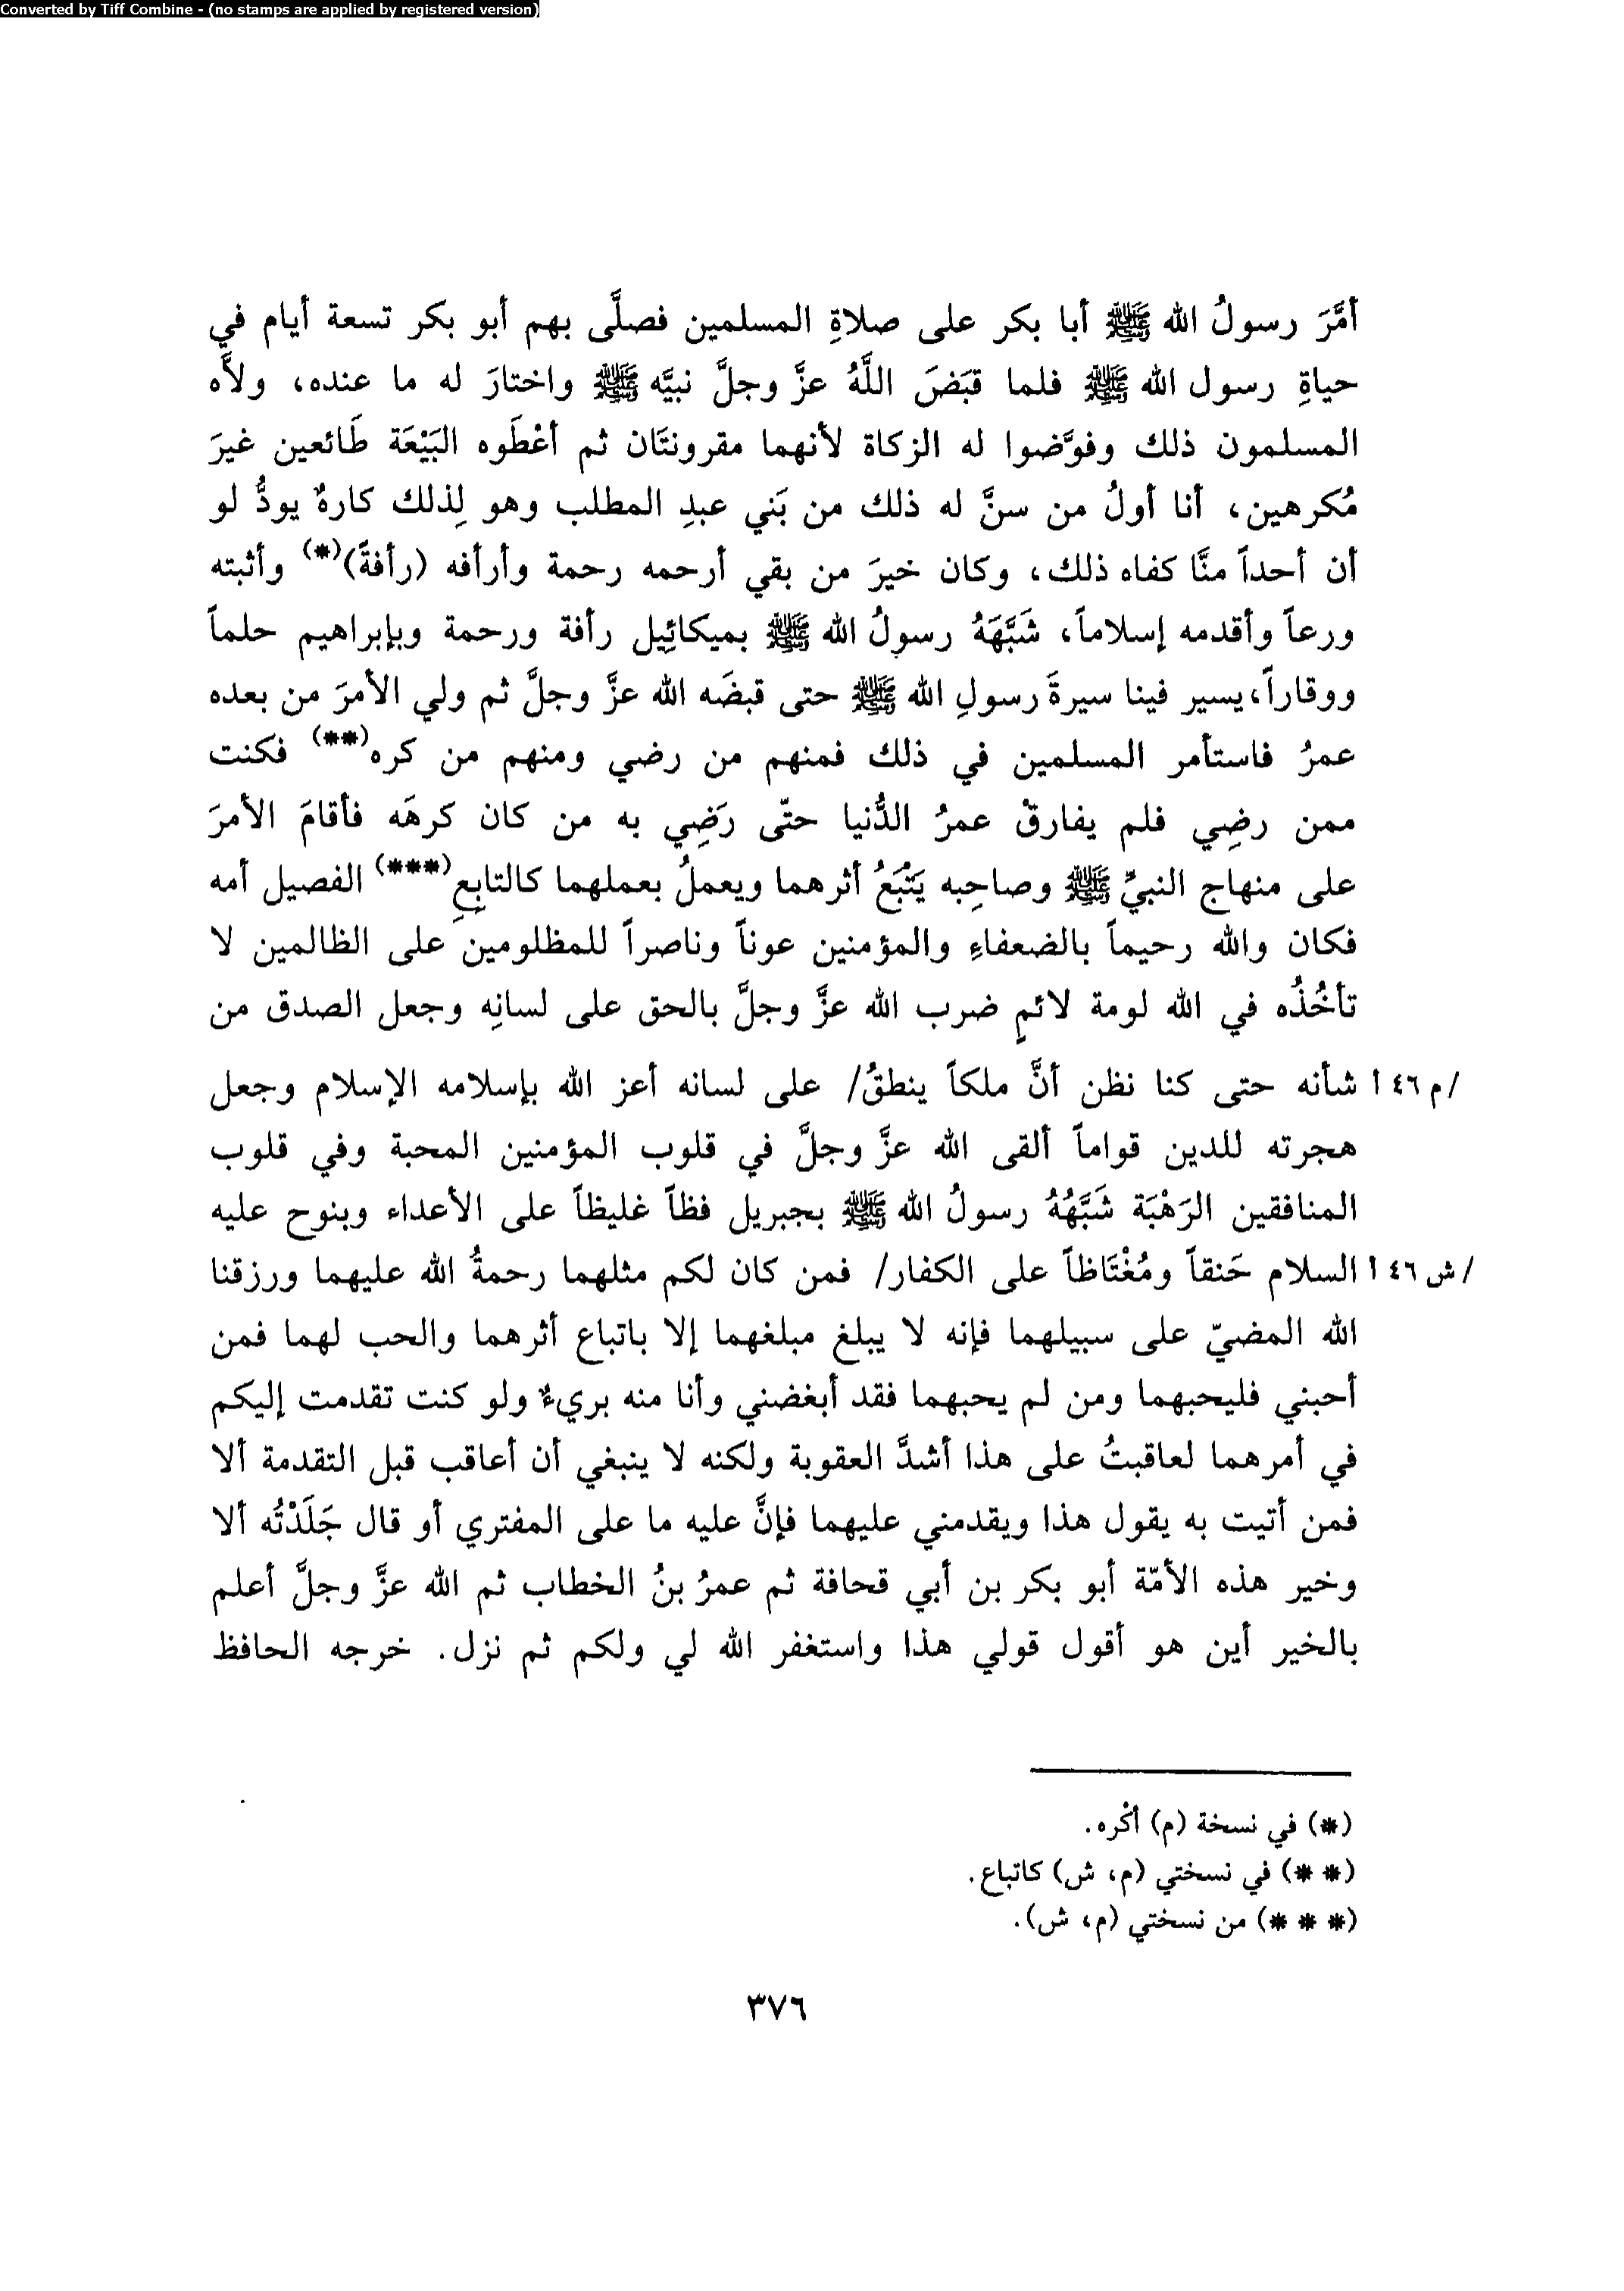 Converted by Tiff Combine - (no stamps are applied by registered version)
أمَّرَ رسولُ الله ﷺ أبا بكر على صلاةِ المسلمين فصلَّى بهم أبو بكر تسعة أيام في
حياةِ رسول الله ﷺ فلما قبَضَ اللَّهُ عزَّ وجلَّ نبيَّه ﷺ واختارَ له ما عنده، ولاَّه
المسلمون ذلك وفوَّضوا له الزكاة لأنهما مقرونتَان ثم أعْطَوه البَيْعَة طَائعين غيرَ
مُكرهين، أنا أولُ من سنَّ له ذلك من بَني عبدِ المطلب وهو لِذلك كارهٌ يودُّ لو
أن أحداً منَّا كفاه ذلك، وكان خيرَ من بقي أرحمه رحمة وأرأفه (رأفةً)(*) وأثبته
ورعاً وأقدمه إسلاماً، شَبَّهَهُ رسولُ الله ﷺ بميكائِيل رأفة ورحمة وبإبراهيم حلماً
ووقاراً، يسير فينا سيرةَ رسولِ الله ﷺ حتى قبضَه الله عزَّ وجلَّ ثم ولي الأمرَ من بعده
عمرُ فاستأمر المسلمين في ذلك فمنهم من رضي ومنهم من كره(**) فكنت
ممن رضِي فلم يفارقْ عمرُ الدُّنيا حتّى رَضِي به من كان كرهَه فأقامَ الأمرَ
على منهاج النبيِّ ﷺ وصاحِبه يَتْبَعُ أثرهما ويعملُ بعملهما كالتابِعِ(***) الفصيل أمه
فكان والله رحيماً بالضعفاءِ والمؤمنين عوناً وناصراً للمظلومين على الظالمين لا
تأخُذُه في الله لومة لائمٍ ضرب الله عزَّ وجلَّ بالحق على لسانِه وجعل الصدق من
/م ٤٦ أ شأنه حتى كنا نظن أنَّ ملكاً ينطقُ/ على لسانه أعز الله بإسلامه الإسلام وجعل
هجرته للدين قواماً ألقى الله عزَّ وجلَّ في قلوب المؤمنين المحبة وفي قلوب
المنافقين الرَهْبَة شَبَّهُهُ رسولُ الله ﷺ بجبريل فظاً غليظاً على الأعداء وبنوح عليه
/ش ٤٦ أ السلام حَنقاً ومُغْتَاظاً على الكفار/ فمن كان لكم مثلهما رحمةُ الله عليهما ورزقنا
الله المضيّ على سبيلهما فإنه لا يبلغ مبلغهما إلا باتباع أثرهما والحب لهما فمن
أحبني فليحبهما ومن لم يحبهما فقد أبغضني وأنا منه بريءٌ ولو كنت تقدمت إليكم
في أمرهما لعاقبتُ على هذا أشدَّ العقوبة ولكنه لا ينبغي أن أعاقب قبل التقدمة ألا
فمن أتيت به يقول هذا ويقدمني عليهما فإنَّ عليه ما على المفتري أو قال جَلَدْتُه ألا
وخير هذه الأمّة أبو بكر بن أبي قحافة ثم عمرُ بنُ الخطاب ثم الله عزَّ وجلَّ أعلم
بالخير أين هو أقول قولي هذا واستغفر الله لي ولكم ثم نزل. خرجه الحافظ
(*) في نسخة (م) أكْره.
(* *) في نسختي (م، ش) كاتباع.
(* * *) من نسختي (م، ش).
٣٧٦